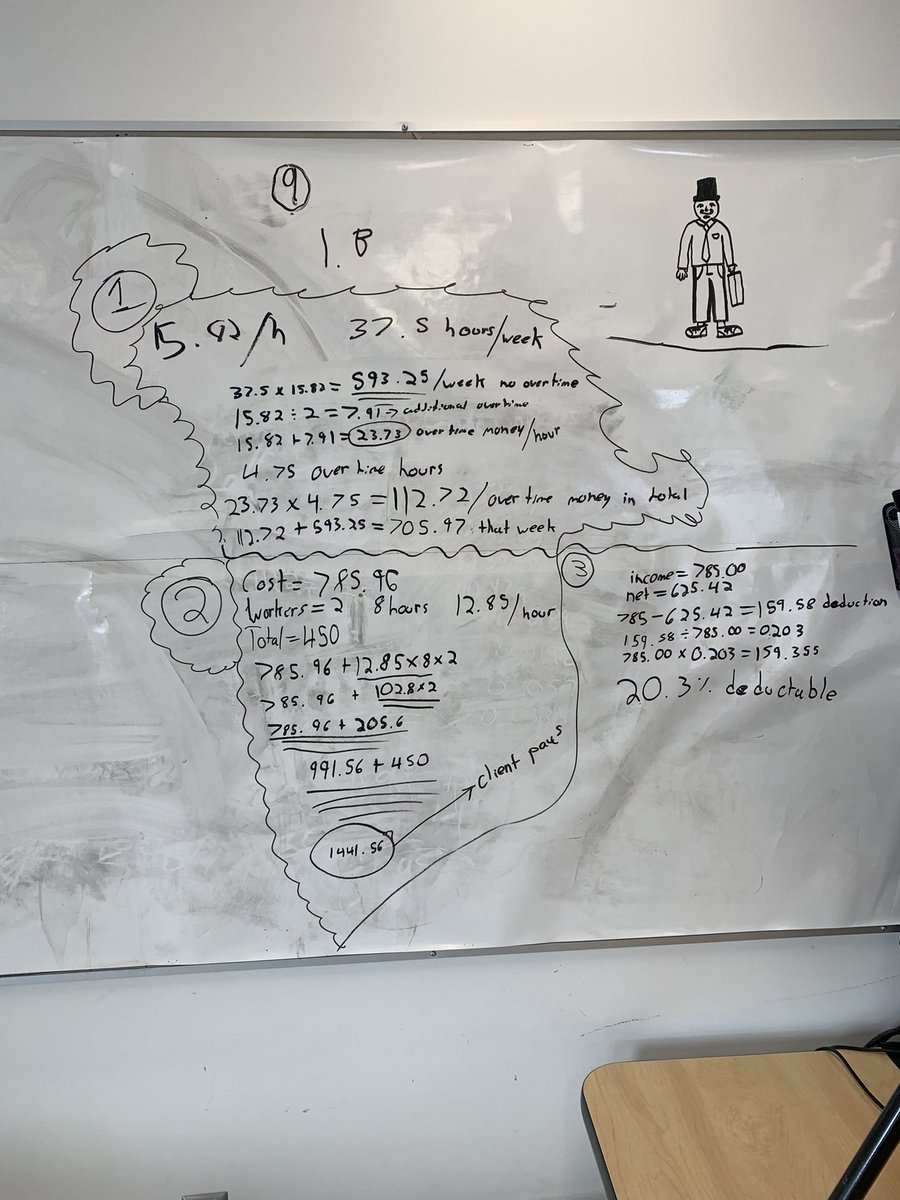 9
1.B
1
15.82/h 37.5 hours/week
37.5 x 15.82 = 593.25/week no overtime
15.82 ÷ 2 = 7.91 → additional overtime
15.82 + 7.91 = 23.73 overtime money/hour
4.75 overtime hours
23.73 x 4.75 = 112.72/overtime money in total
112.72 + 593.25 = 705.97 that week
2
Cost = 785.96
Workers = 2 8 hours 12.85/hour
Total = 450
785.96 + 12.85 x 8 x 2
785.96 + 102.8 x 2
785.96 + 205.6
991.56 + 450
1441.56
Client pays
3
income = 785.00
net = 625.42
785 - 625.42 = 159.58 deduction
159.58 ÷ 785.00 = 0.203
785.00 x 0.203 = 159.355
20.3% deductable